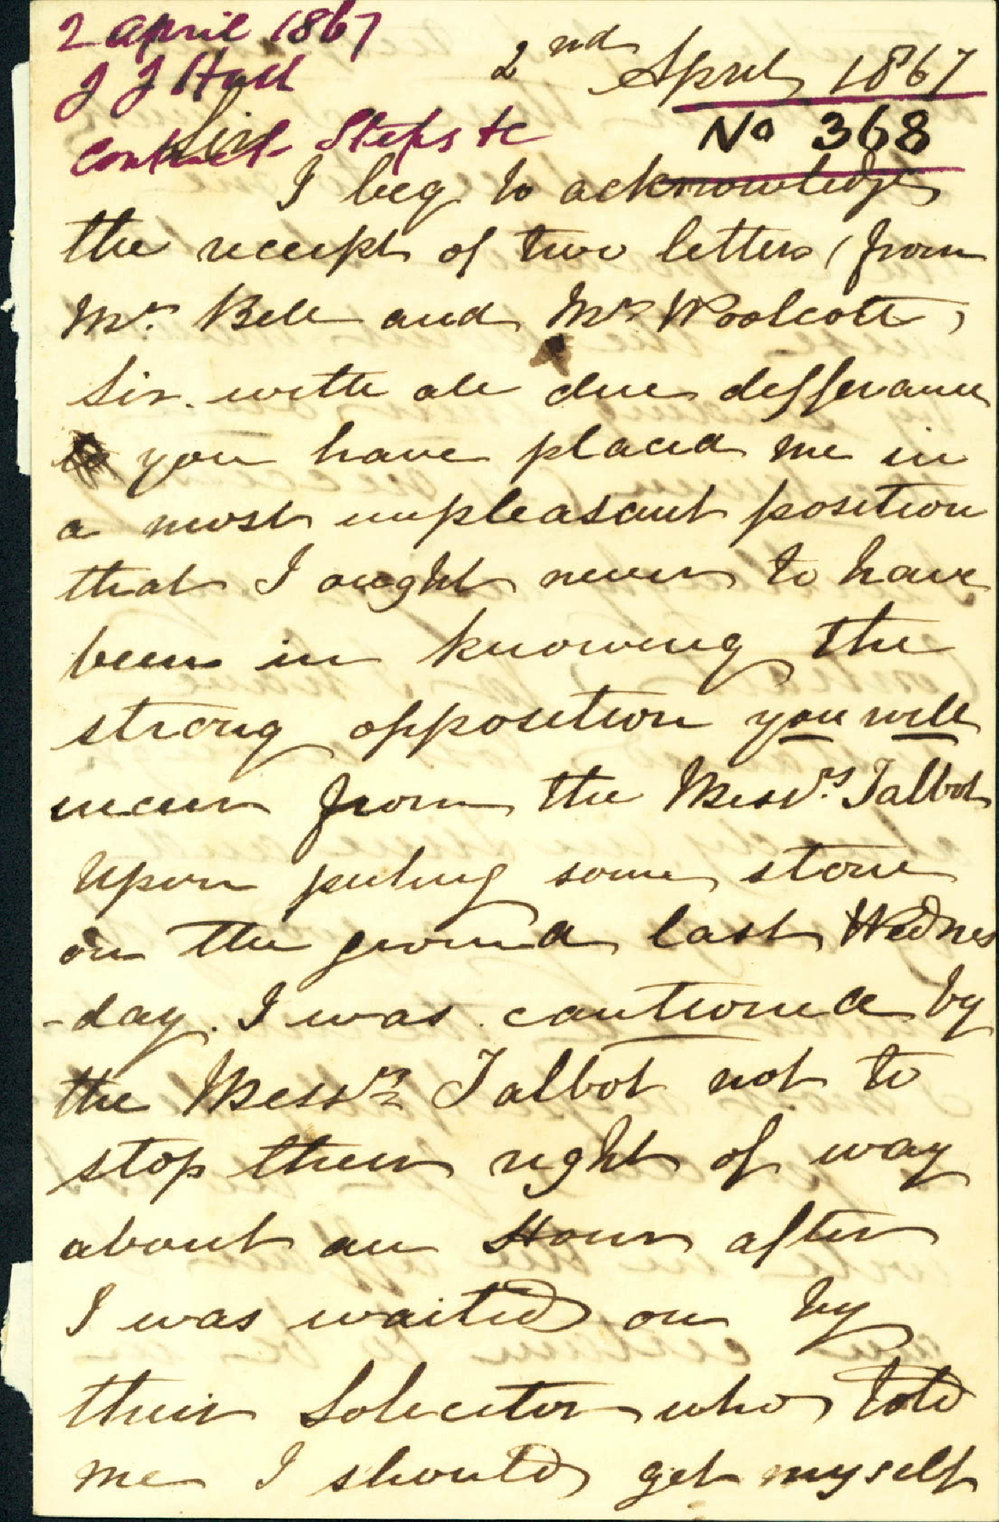 2 april 1867
J J Hall
Contract Steps &c
2nd April 1867
No 368
Sir
I beg to acknowledge
the receipt of two letters (from
Mr. Bell and Mr Woolcott,
Sir. with all due defferance
to you have placed me in
a most unpleasant position
that I ought never to have
been in knowing the
strong opposition you will
incur from the Messrs. Talbot
Upon puting some stone
on the ground last Wednes
-day. I was cautioned by
the Messrs Talbot not to
stop their right of way
about an Hour after
I was waited on by
their Solicitor who told
me I should get myself